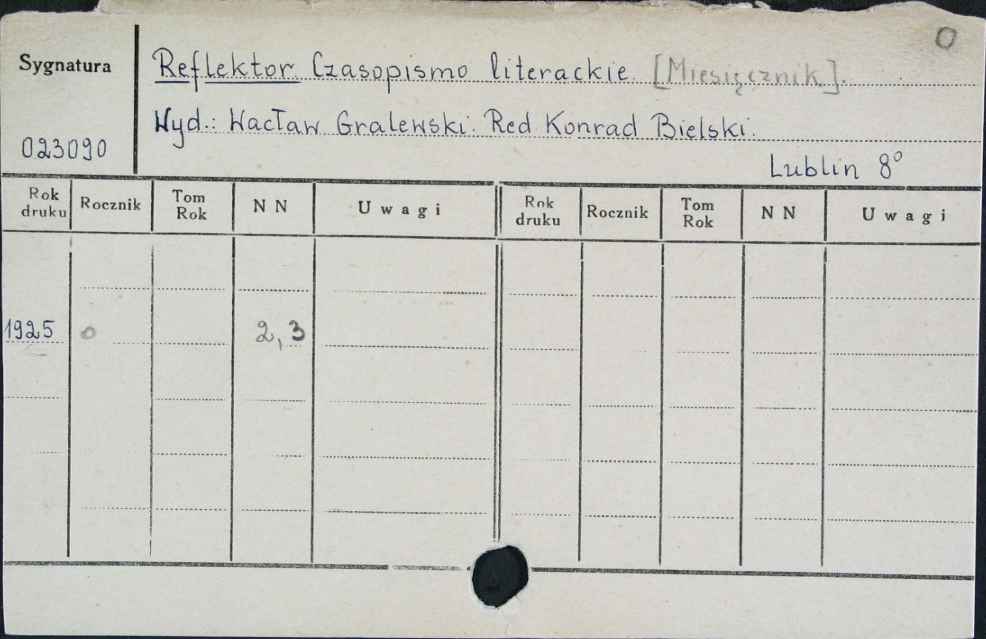 O
Sygnatura
Reflektor. Czasopismo literackie. [Miesięcznik].
Wyd.: Wacław Gralewski. Red Konrad Bielski.
023090
Lublin 8°
Rok druku Rocznik Tom Rok N N Uwagi Rok druku Rocznik Tom Rok N N Uwagi
1925 0 2, 3